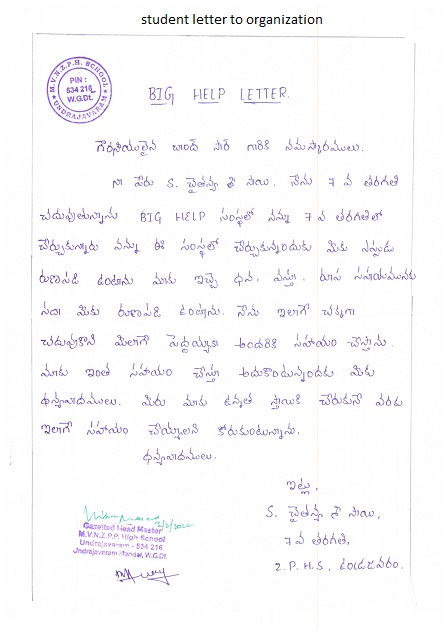 student letter to organization
M.V.N.Z.P.H. SCHOOL
PIN :
534 216
W.G.Dt.
UNDRAJAVARAM
BIG HELP LETTER.
గౌరవనీయులైన చాంద్ సార్ గారికి నమస్కారములు.
నా పేరు S. చైతన్య శ్రీ సాయి. నేను 7 వ తరగతి
చదువుతున్నాను BIG HELP సంస్థలో నన్ను 7 వ తరగతిలో
చేర్చుకున్నారు నన్ను ఈ సంస్థలో చేర్చుకున్నందుకు మీకు ఎప్పుడు
రుణపడి ఉంటాను మాకు ఇచ్చే ధన, వస్తూ, రూప సహాయమునకు
సదా మీకు రుణపడి ఉంటాను. నేను ఇలాగే చక్కగా
చదువుకొని మీలాగే పెద్దయ్యాక అందరికి సహాయం చేస్తాను.
మాకు ఇంత సహాయం చేస్తూ ఆదుకొంటున్నందుకు మీకు
ధన్యవాదములు. మీరు మాకు ఉన్నత స్థాయికి చేరుకునే వరకు
ఇలాగే సహాయం చేయ్యాలని కోరుకుంటున్నాను.
ధన్యవాదములు.
ఇట్లు,
S. చైతన్య శ్రీ సాయి,
7 వ తరగతి,
Z.P.H.S. ఉండ్రాజవరం.
Gazetted Head Master
M.V.N.Z.P.P. High School
Undrajavaram - 534 216
Undrajavaram Mandal, W.G.Dt.